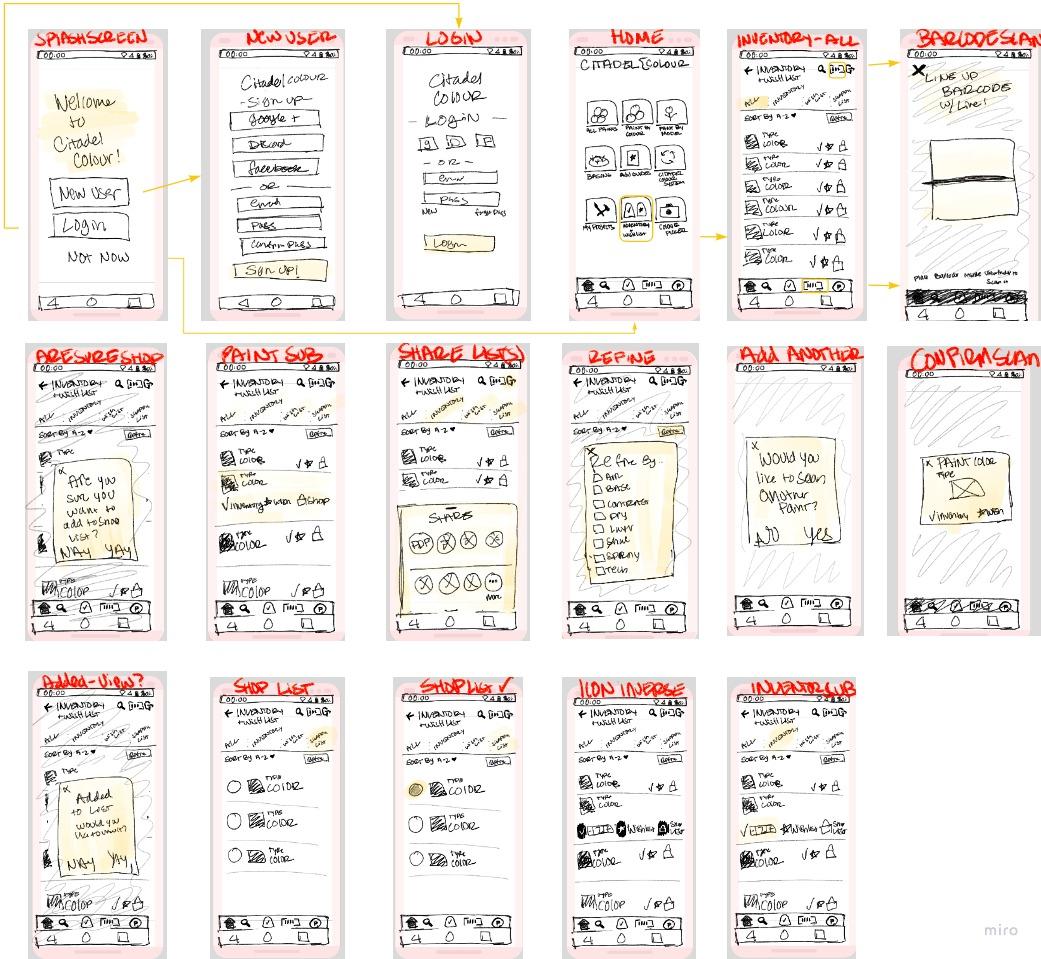 SPLASHSCREEN
00:00
Welcome
to
Citadel
Colour!
New User
Login
Not Now
NEW USER
00:00
Citadel COLOUR
- Sign up -
Google +
Discord
facebook
- OR -
Email
Pass
Confirm Pass
Sign Up!
LOGIN
00:00
Citadel
COLOUR
- LOGIN -
- OR -
Email
Pass
New
Login
HOME
00:00
CITADEL COLOUR
ALL PAINTS
PAINT BY COLOUR
PAINT BY MODEL
BASING
CITADEL COLOUR SYSTEM
MY PROJECTS
INVENTORY + WISHLIST
INVENTORY-ALL
00:00
← INVENTORY
+ WISH LIST
ALL
INVENTORY
SORT BY A-Z
Refine
TYPE
COLOR
TYPE
COLOR
TYPE
COLOR
TYPE
COLOUR
TYPE
COLOR
TYPE
COLOR
BARCODE SCAN
00:00
X LINE UP
BARCODE
w/ Line!
ARE SURE SHOP
00:00
← INVENTORY
+ WISH LIST
ALL
INVENTORY
WISH LIST
SHOPPING LIST
SORT BY A-Z
Refine
TYPE
X
Are you
sure you
want to
add to shop
list?
NAY YAY!
TYPE
COLOR
PAINT SUB
00:00
← INVENTORY
+ WISH LIST
ALL
INVENTORY
WISH LIST
SHOPPING LIST
SORT BY A-Z
Refine
TYPE
COLOR
TYPE
COLOR
✓ Inventory ★ Wish Shop
TYPE
COLOR
TYPE
COLOR
SHARE LIST(S)
00:00
← INVENTORY
+ WISH LIST
ALL
INVENTORY
WISH LIST
SHOPPING LIST
SORT BY A-Z
Refine
TYPE
COLOR
TYPE
COLOR
SHARE
PDF
More
REFINE
00:00
← INVENTORY
+ WISH LIST
ALL
INVENTORY
WISH LIST
SHOPPING LIST
SORT BY A-Z
Refine
X
Refine By:
AIR
BASE
CONTRAST
DRY
Layer
Shade
Spray
Tech
Add ANOTHER
00:00
X
Would you
like to scan
another
Paint?
No Yes
CONFIRM SCAN
00:00
X PAINT COLOR
TYPE
✓ Inventory ★ Wish
Added-View?
00:00
← INVENTORY
+ WISH LIST
ALL
INVENTORY
WISH LIST
SHOPPING LIST
SORT BY A-Z
Refine
TYPE
X
Added
to List
would you
like to view it?
NAY YAY!
TYPE
COLOR
SHOP LIST
00:00
← INVENTORY
+ WISH LIST
ALL
INVENTORY
WISH LIST
SHOPPING LIST
SORT BY A-Z
Refine
TYPE
COLOR
TYPE
COLOR
TYPE
COLOR
SHOP LIST ✓
00:00
← INVENTORY
+ WISH LIST
ALL
INVENTORY
WISH LIST
SHOPPING LIST
SORT BY A-Z
Refine
TYPE
COLOR
TYPE
COLOR
TYPE
COLOR
ICON INVERSE
00:00
← INVENTORY
+ WISH LIST
ALL
INVENTORY
WISH LIST
SHOPPING LIST
SORT BY A-Z
Refine
TYPE
COLOR
TYPE
COLOR
Wishlist
TYPE
COLOR
TYPE
COLOR
INVENTOR SUB
00:00
← INVENTORY
+ WISH LIST
ALL
INVENTORY
WISH LIST
SHOPPING LIST
SORT BY A-Z
Refine
TYPE
COLOR
TYPE
COLOR
Wishlist
TYPE
COLOR
TYPE
COLOR
miro